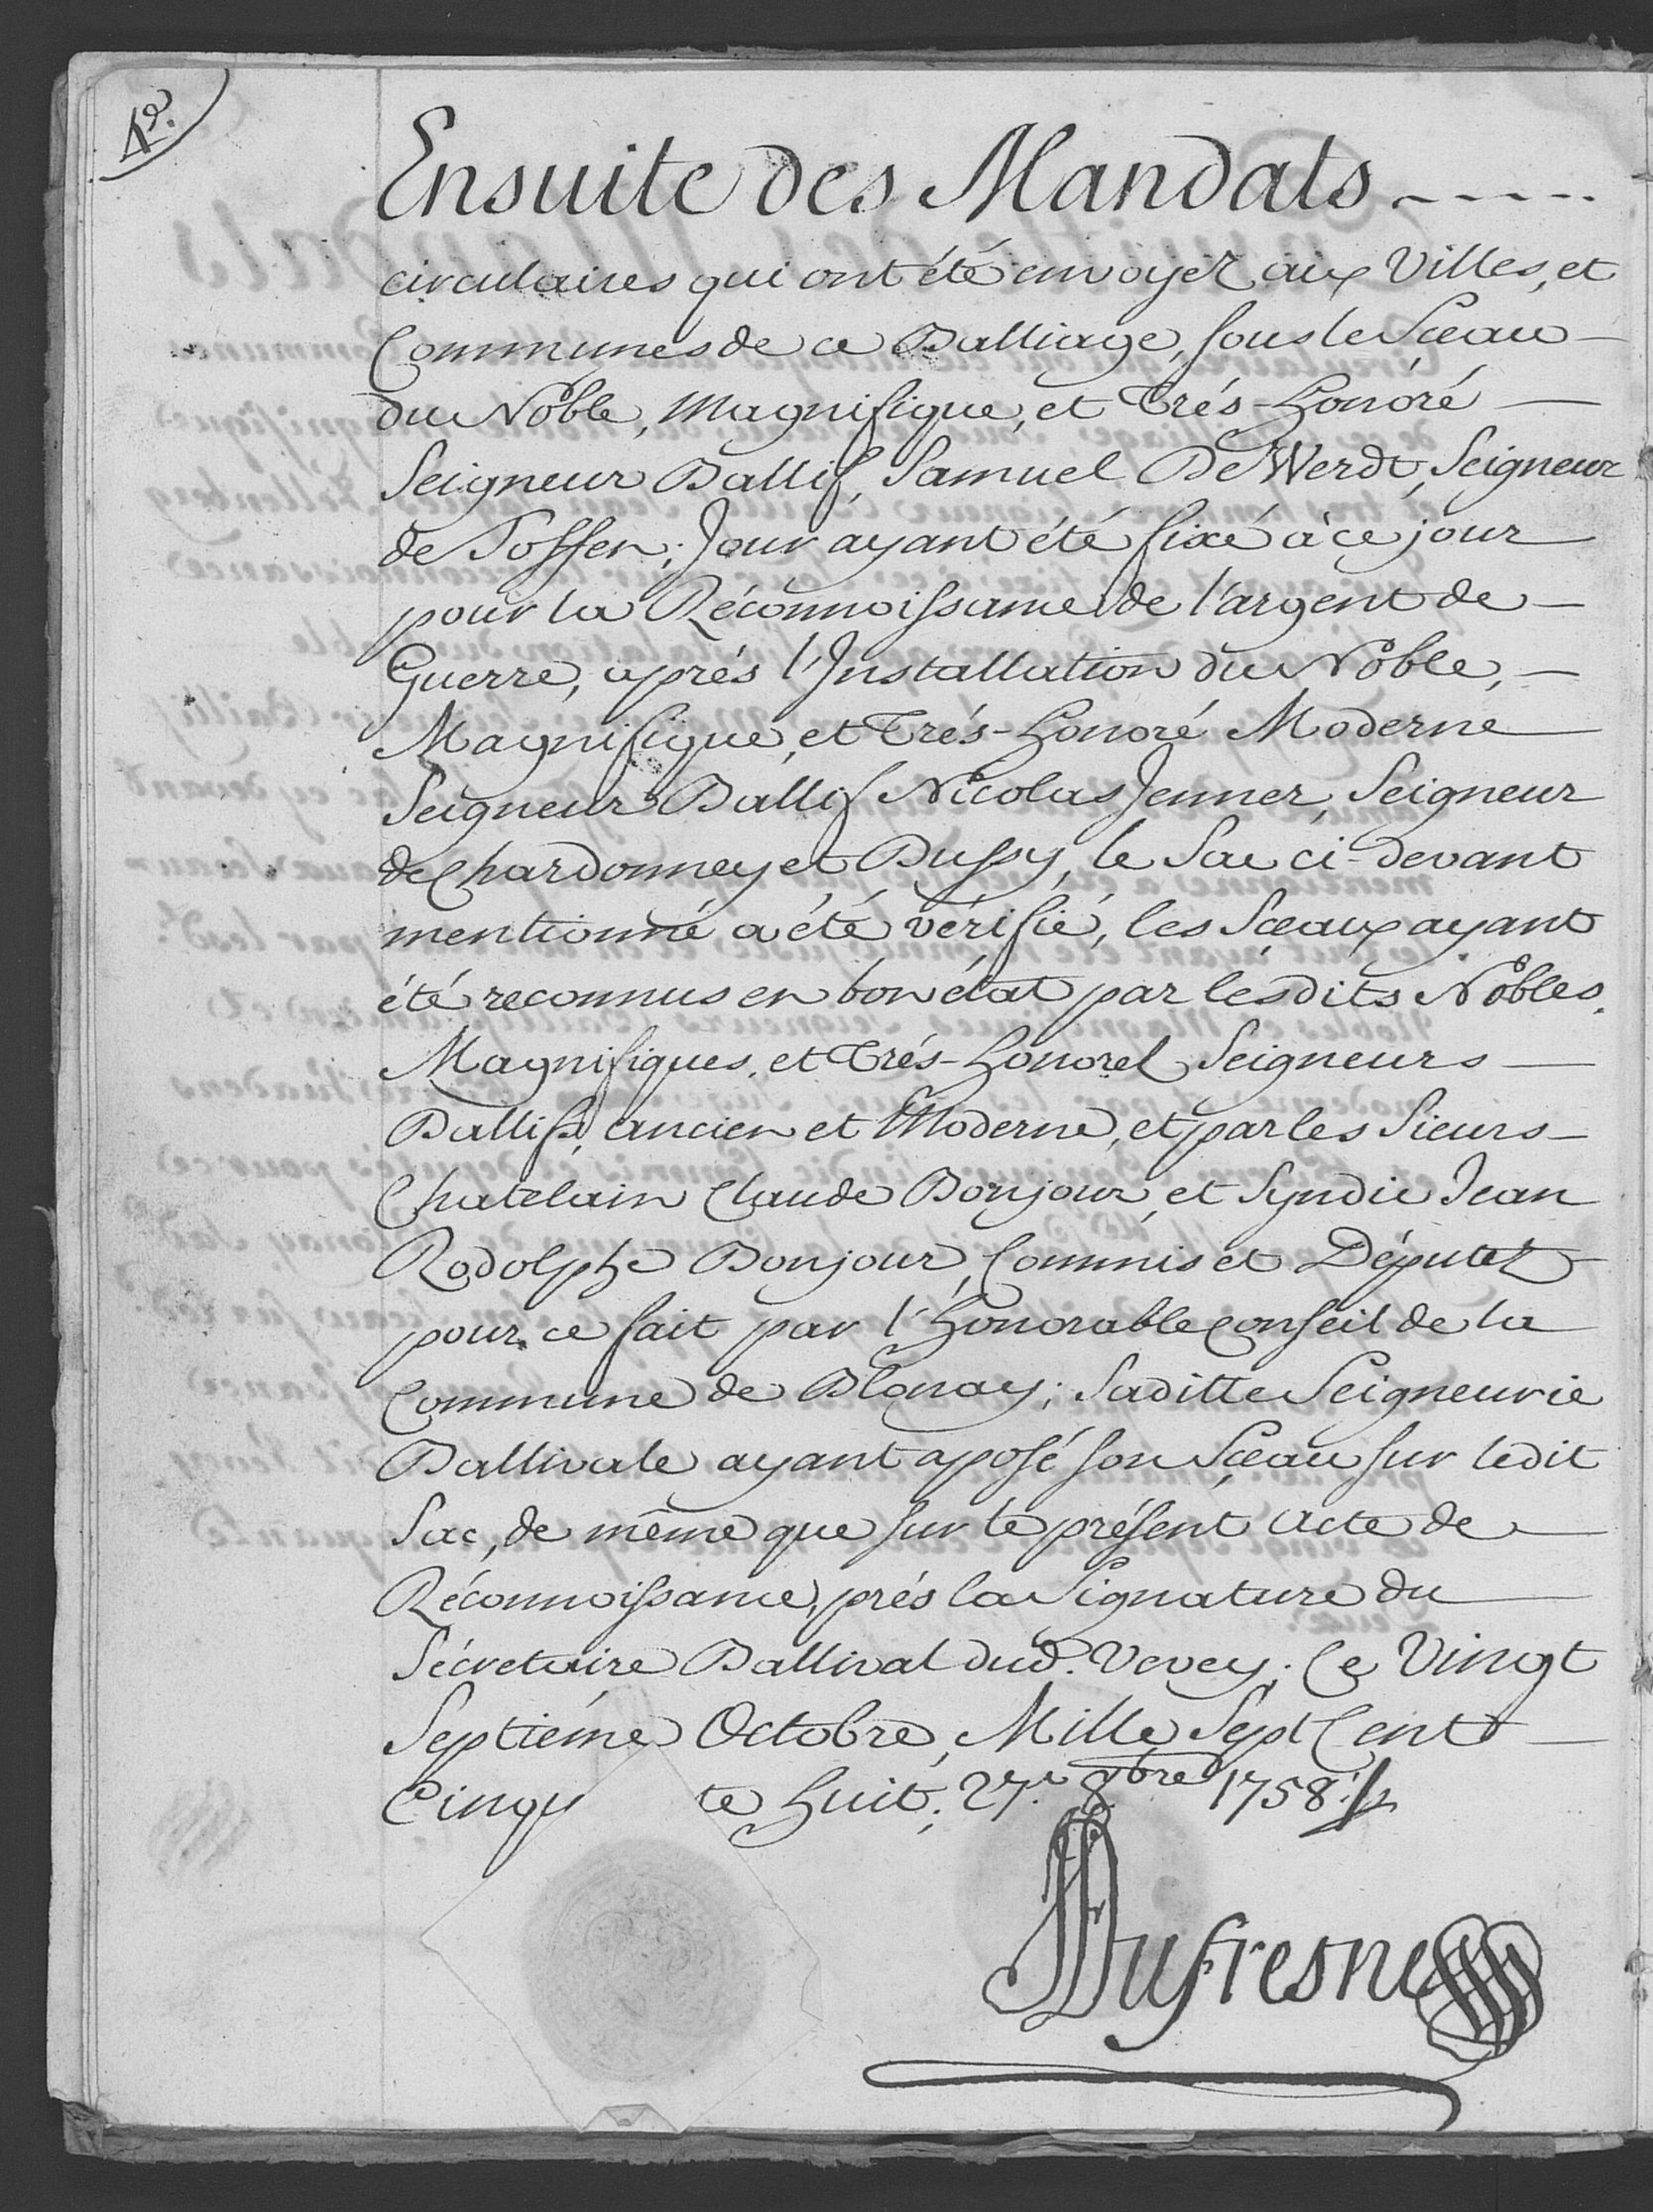 4e.
Ensuite des Mandats-----
circulaires qui ont été envoyez aux Villes, et
Communes de ce Balliage, sous le Sceau—
du Noble, Magnifique, et Trés-Honóré—
Seigneur Ballif, Samuel De Werdt, Seigneur
de Toffen; Jour ayant été fixé à ce jour
pour la Réconnoissance de l'argent de—
Guerre, aprés l'Installation du Noble,—
Magnifique, et Trés-Honoré Moderne
Seigneur Ballif Nicolas Jenner, Seigneur
de Chardonney et Bussy, le Sac ci-devant
mentionné a été vérifié, les Sceaux ayant
été reconnus en bon état par lesdits Nobles,
Magnifiques, et Trés-Honorez Seigneurs—
Ballifs, ancien et Moderne, et par les Sieurs—
Chatelain Claude Bonjour, et Syndic Jean
Rodolphe Bonjour, Commis et Députez
pour ce fait par l'Honorable Conseil de la
Commune de Blonay; Saditte Seigneurie
Ballivale ayant aposé son Sceau sur ledit
Sac, de même que sur le présent Acte de—
Réconnoissance, prés la Signature du—
Sécretaire Ballival dud. Vevey; Ce Vingt
Septiéme Octobre, Mille Sept Cent—
Cinqu te Huit; 27e. 8bre 1758.
Dufresne